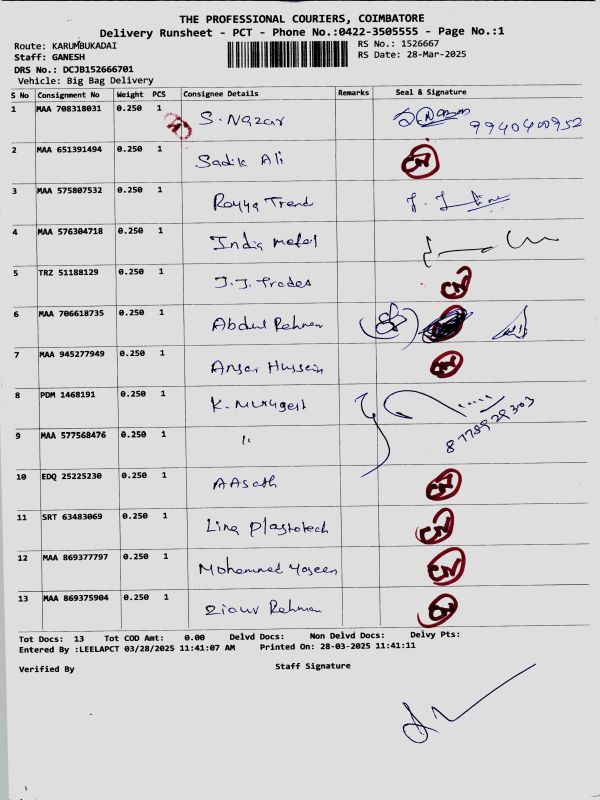 THE PROFESSIONAL COURIERS, COIMBATORE
Delivery Runsheet - PCT - Phone No.:0422-3505555 - Page No.:1
Route: KARUMBUKADAI
RS No.: 1526667
Staff: GANESH
RS Date: 28-Mar-2025
DRS No.: DCJB152666701
Vehicle: Big Bag Delivery
S No Consignment No Weight PCS Consignee Details Remarks Seal & Signature
1 MAA 708318031 0.250 1 S. Nazar 9940400952
2 MAA 651391494 0.250 1 Sadik Ali CN
3 MAA 575807532 0.250 1 Rayya Trend
4 MAA 576304718 0.250 1 India metal
5 TRZ 51188129 0.250 1 J.J. Trades CN
6 MAA 706618735 0.250 1 Abdul Rehman
7 MAA 945277949 0.250 1 Ansar Hussain CN
8 PDM 1468191 0.250 1 K. Murugesh
9 MAA 577568476 0.250 1 " 8778929303
10 EDQ 25225230 0.250 1 AAsath CN
11 SRT 63483069 0.250 1 Lina Plastotech CN
12 MAA 869377797 0.250 1 Mohemmed Yaseen CN
13 MAA 869375904 0.250 1 Ziaur Rehman CN
Tot Docs: 13 Tot COD Amt: 0.00 Delvd Docs: Non Delvd Docs: Delvy Pts:
Entered By :LEELAPCT 03/28/2025 11:41:07 AM Printed On: 28-03-2025 11:41:11
Verified By Staff Signature